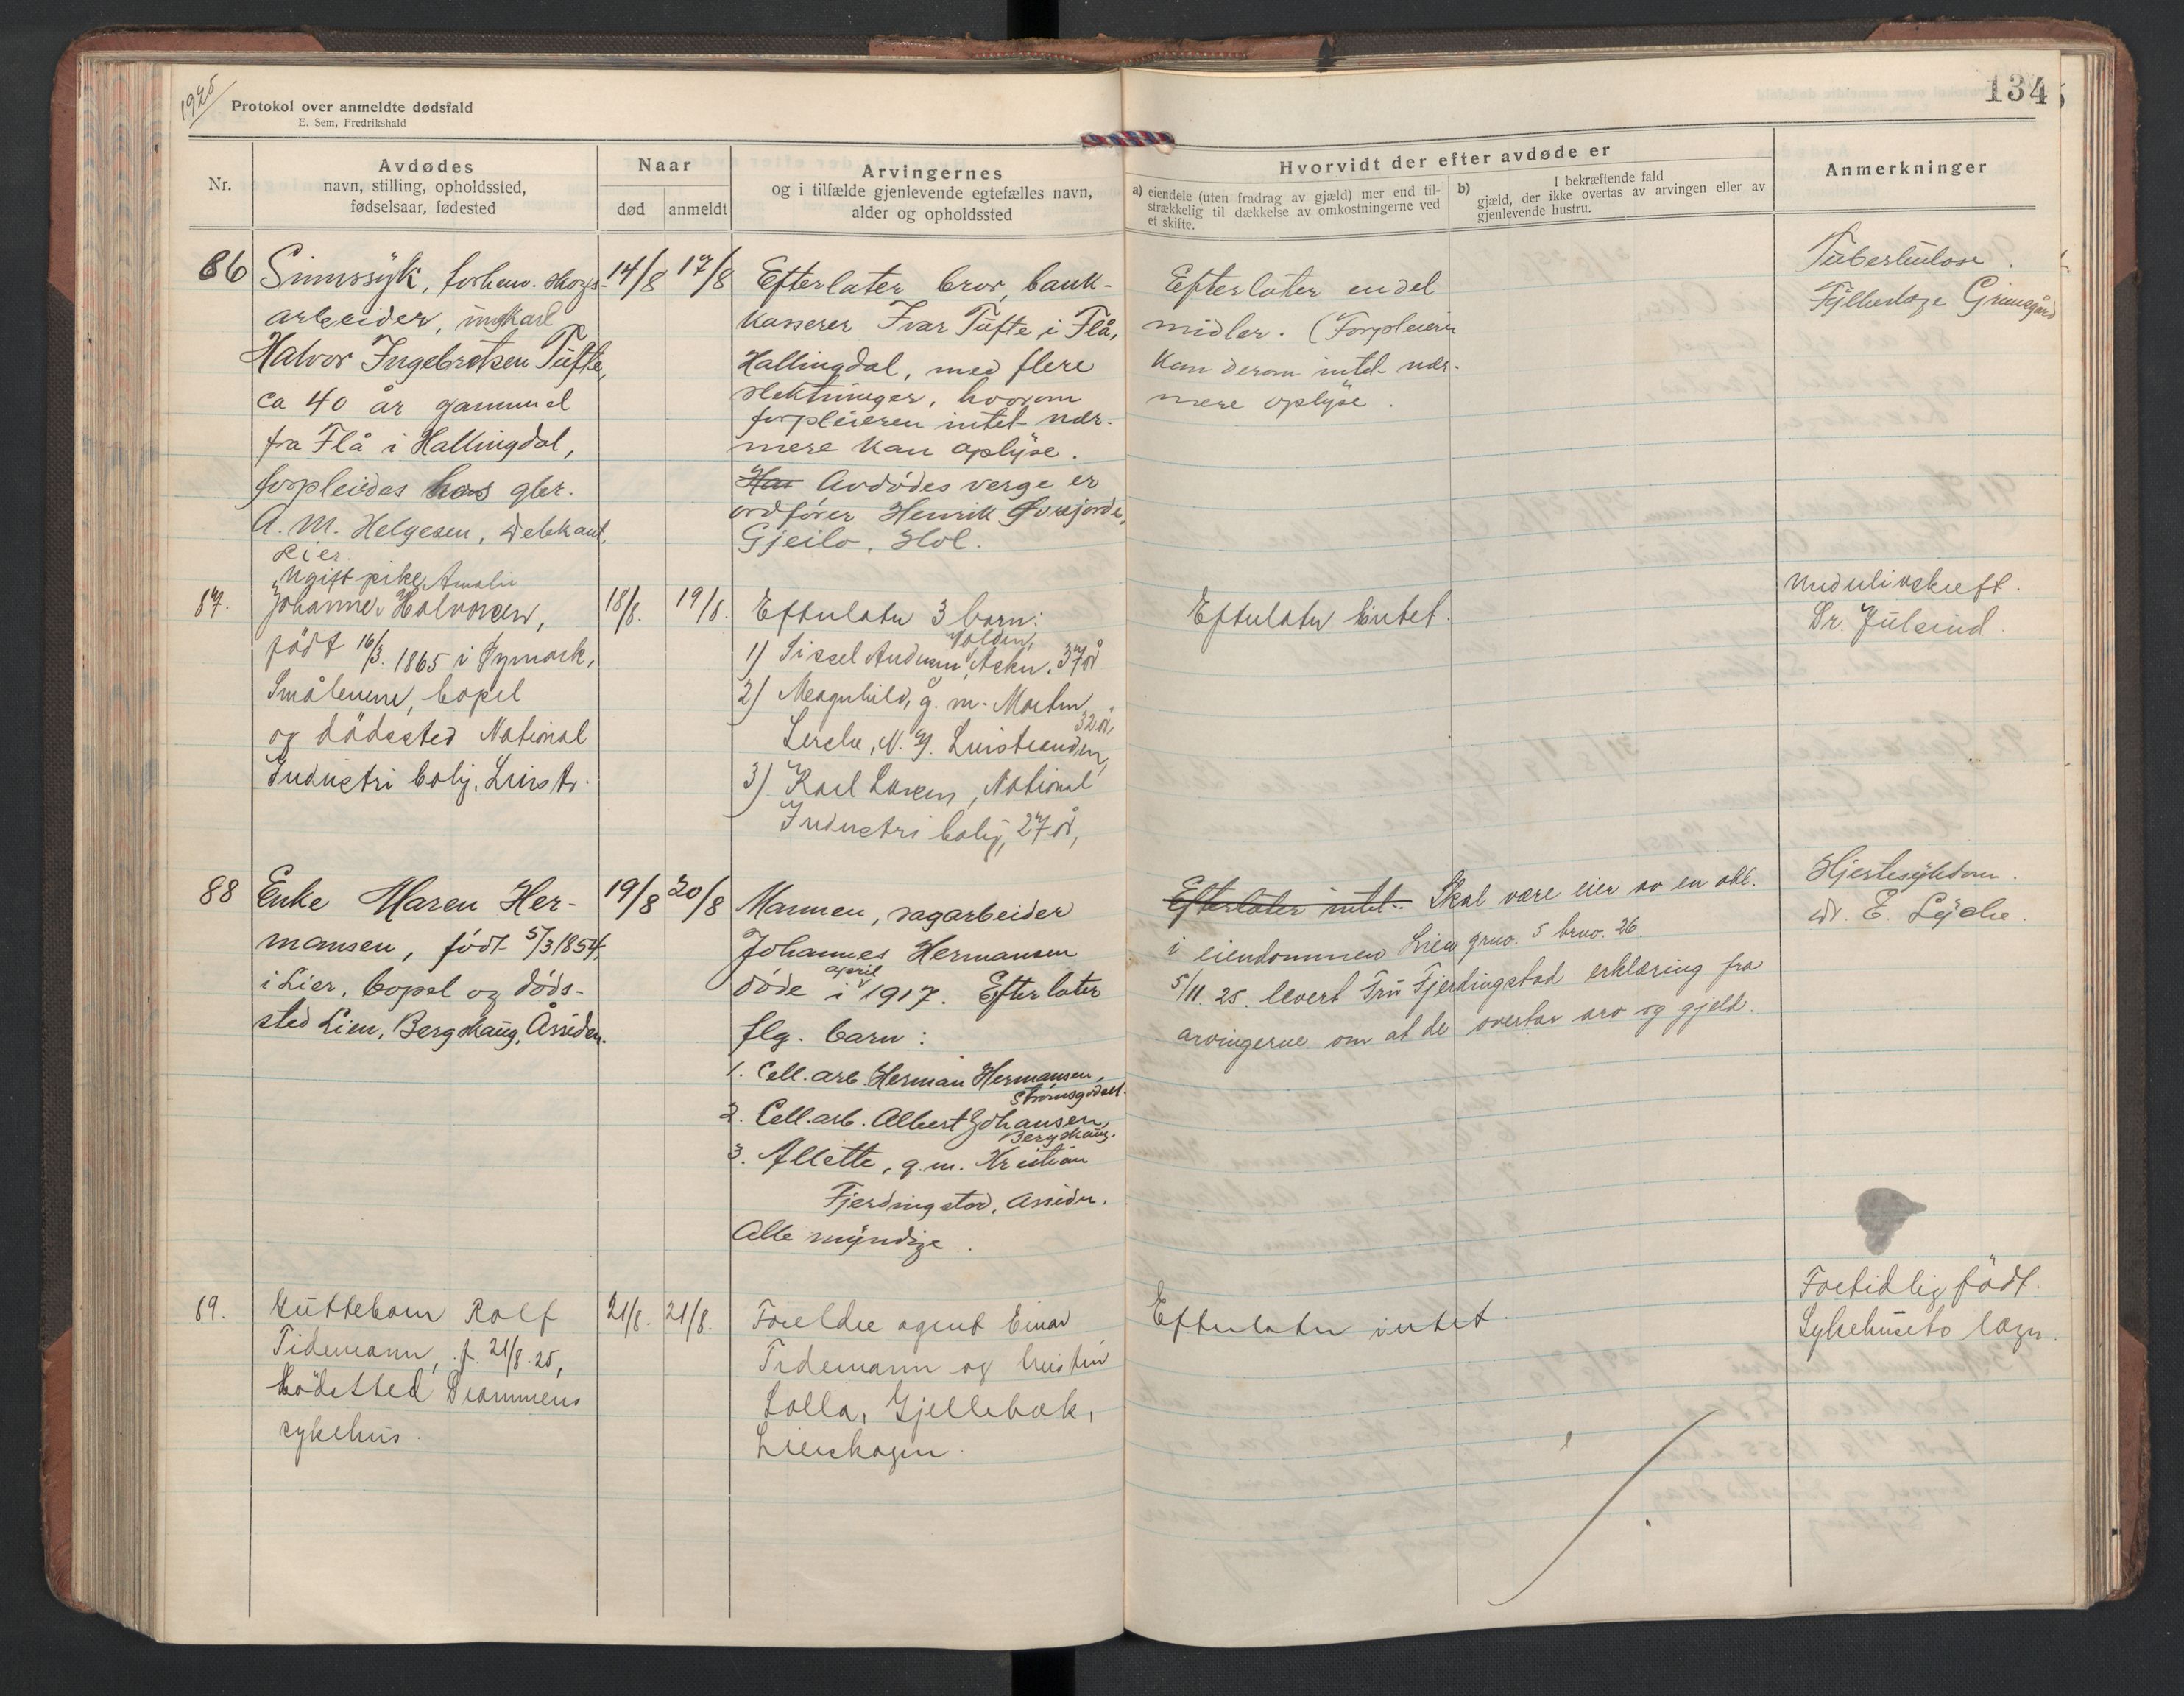 1925
Protokol over anmeldte dødsfald
E. Sem, Fredrikshald
134
Nr.
Avdødes
navn, stilling, opholdssted,
fødselsaar, fødested
Naar
død
anmeldt
Arvingernes
og i tilfælde gjenlevende egtefælles navn,
alder og opholdssted
Hvorvidt der efter avdøde er
a) eiendele (uten fradrag av gjæld) mer end til-
strækkelig til dækkelse av omkostningerne ved
et skifte.
b) I bekræftende fald
gjæld, der ikke overtas av arvingen eller av
gjenlevende hustru.
Anmerkninger
86
Sinnssyk, forhenv. skogs-
arbeider, ungkarl
Halvor Ingebretsen Tufte,
ca 40 år gammel
fra Flå i Hallingdal,
forpleiedes hos gbr.
A. M. Helgesen,
Lier.
14/8
17/8
Efterlater bror, bank-
kasserer Ivar Tufte i Flå,
Hallingdal, med flere
slektninger, hvorom
forpleieren intet nær-
mere kan oplyse.
Har Avdødes verge er
ordfører Henrik Øvrejorde,
Gjeilo, Hol.
Efterlater endel
midler. (Forpleieren
kan derom intet nær-
mere oplyse.
Tuberkulose.
Fylkeslæge Grimsgård
87.
Ugift pike Amalie
Johanne Halvorsen,
født 16/3. 1865 i Øymark,
Smålenene, bopel
og dødssted National
Industri bolig, Linstr.
18/8.
19/8.
Efterlater 3 barn:
1) Sissel Andersen, Volden, Asker, 37 år
2) Magnhild, g. m. Morten
Lerche, N. g. Linstranden, 32 år,
3) Karl Larsen, National
Industri bolig, 27 år,
Efterlater intet.
Underlivskreft.
Dr. Julsrud.
88
Enke Maren Her-
mansen, født 5/3 1854
i Lier, bopel og døds-
sted Lien, Bergskaug, Åssiden.
19/8
20/8
Mannen, sagarbeider
Johannes Hermansen
døde i april 1917. Efterlater
flg. barn:
1. Cell.arb. Herman Hermansen,
Strømsgodset.
2. Cell.arb. Albert Johansen,
Bergskaug.
3. Allette, g.m. Kristian
Fjerdingstad, Assiden.
Alle myndige.
Efterlater intet. Skal være eier av en
i eiendommen Lien gnr. 5 brno. 26.
5/11. 25. levert Fru Fjerdingstad erklæring fra
arvingerne om at de overtar arv og gjeld.
Hjertesykdom.
dr. E. Lyche.
89.
Guttebarn Rolf
Tidemann, f. 21/8. 25,
Dødssted Drammens
sykehus.
21/8.
21/8.
Foreldre agent Einar
Tidemann og hustru
Lolla, Gjellebæk,
Lierskogen.
Efterlater intet.
Fortidlig født.
Sykehusets læge.